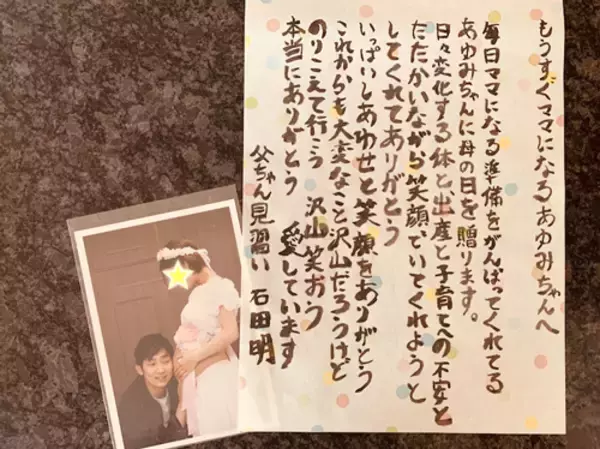 もうすぐママになるあゆみちゃんへ
毎日ママになる準備をがんばってくれてる
あゆみちゃんに母の日を贈ります。
日々変化する体と、出産と子育てへの不安と
たたかいながら笑顔でいてくれようと
してくれてありがとう
いっぱいしあわせと笑顔をありがとう
これからも大変なこと沢山だろうけど
のりこえて行こう 沢山笑おう
本当にありがとう 愛しています
父ちゃん見習い 石田明